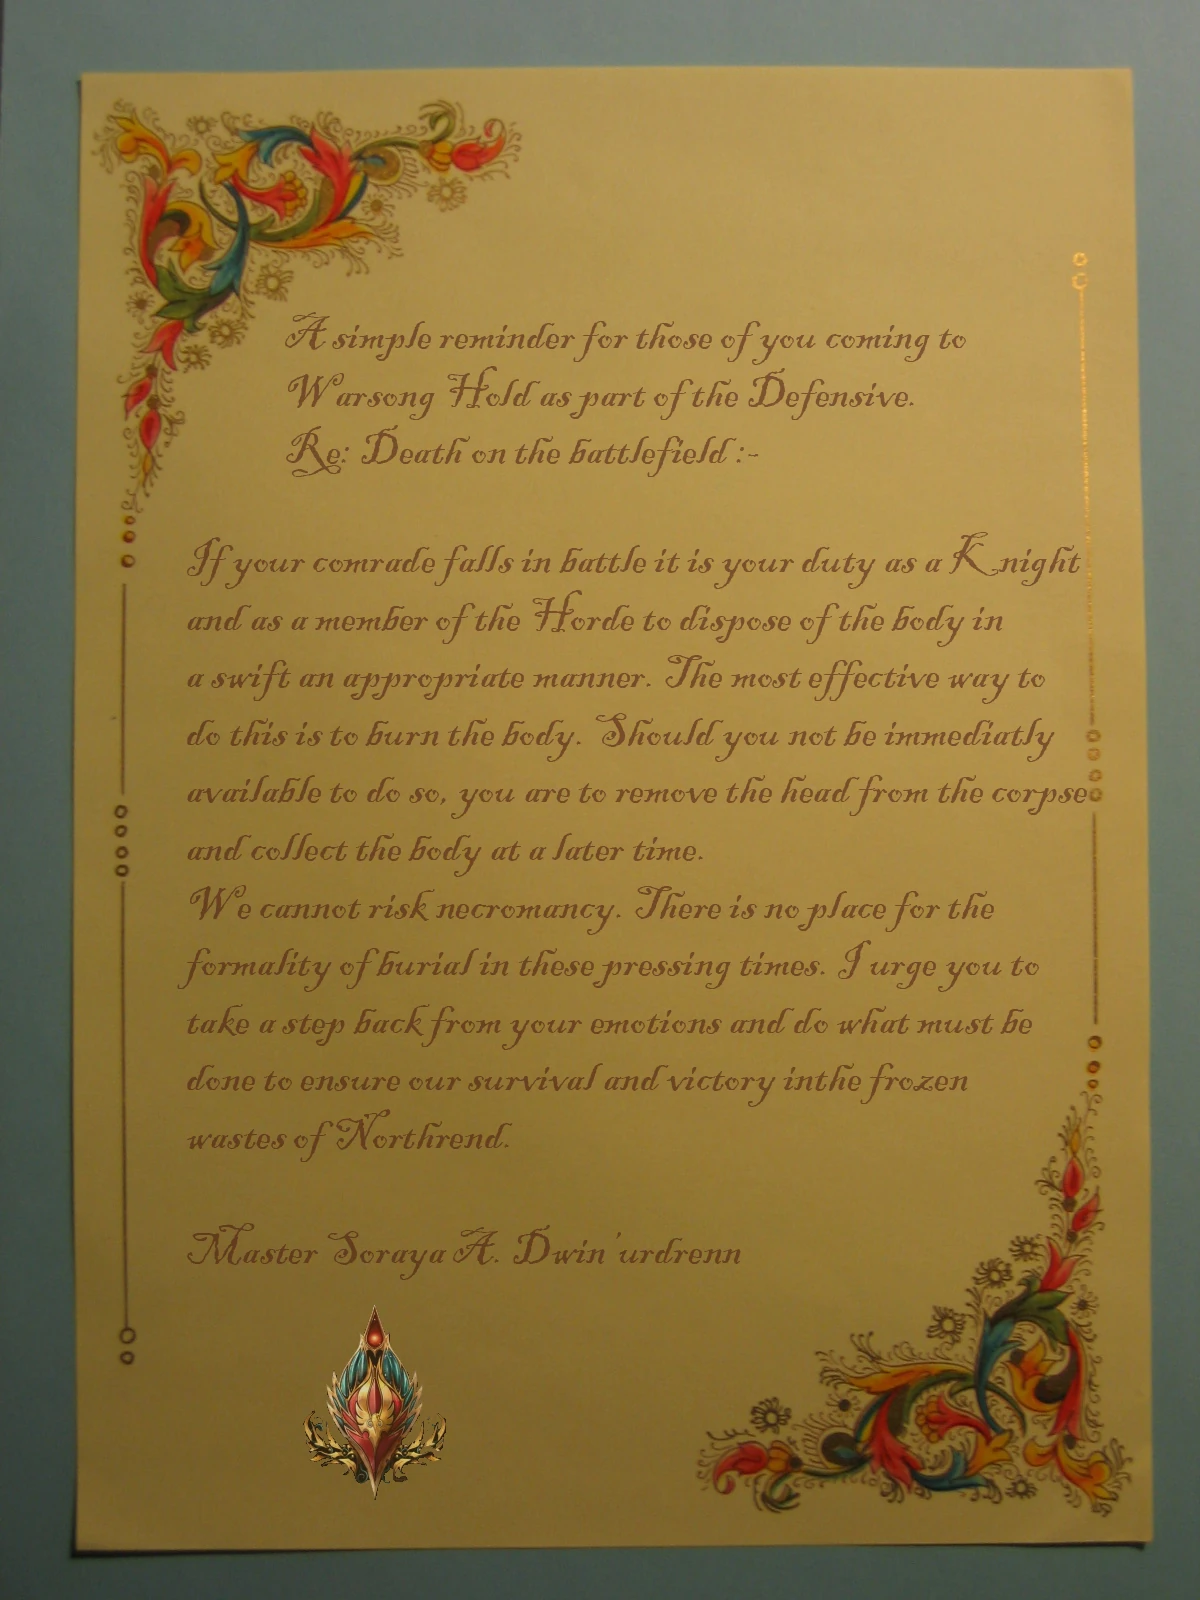 A simple reminder for those of you coming to
Warsong Hold as part of the Defensive.
Re: Death on the battlefield :-
If your comrade falls in battle it is your duty as a Knight
and as a member of the Horde to dispose of the body in
a swift an appropriate manner. The most effective way to
do this is to burn the body. Should you not be immediatly
available to do so, you are to remove the head from the corpse
and collect the body at a later time.
We cannot risk necromancy. There is no place for the
formality of burial in these pressing times. I urge you to
take a step back from your emotions and do what must be
done to ensure our survival and victory inthe frozen
wastes of Northrend.
Master Soraya A. Dwin'urdrenn